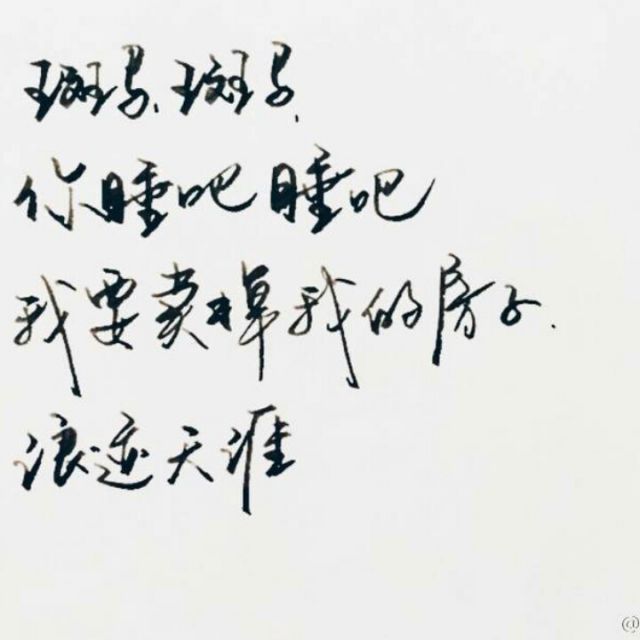 斑马、斑马、
你睡吧睡吧
我要卖掉我的房子.
浪迹天涯
@